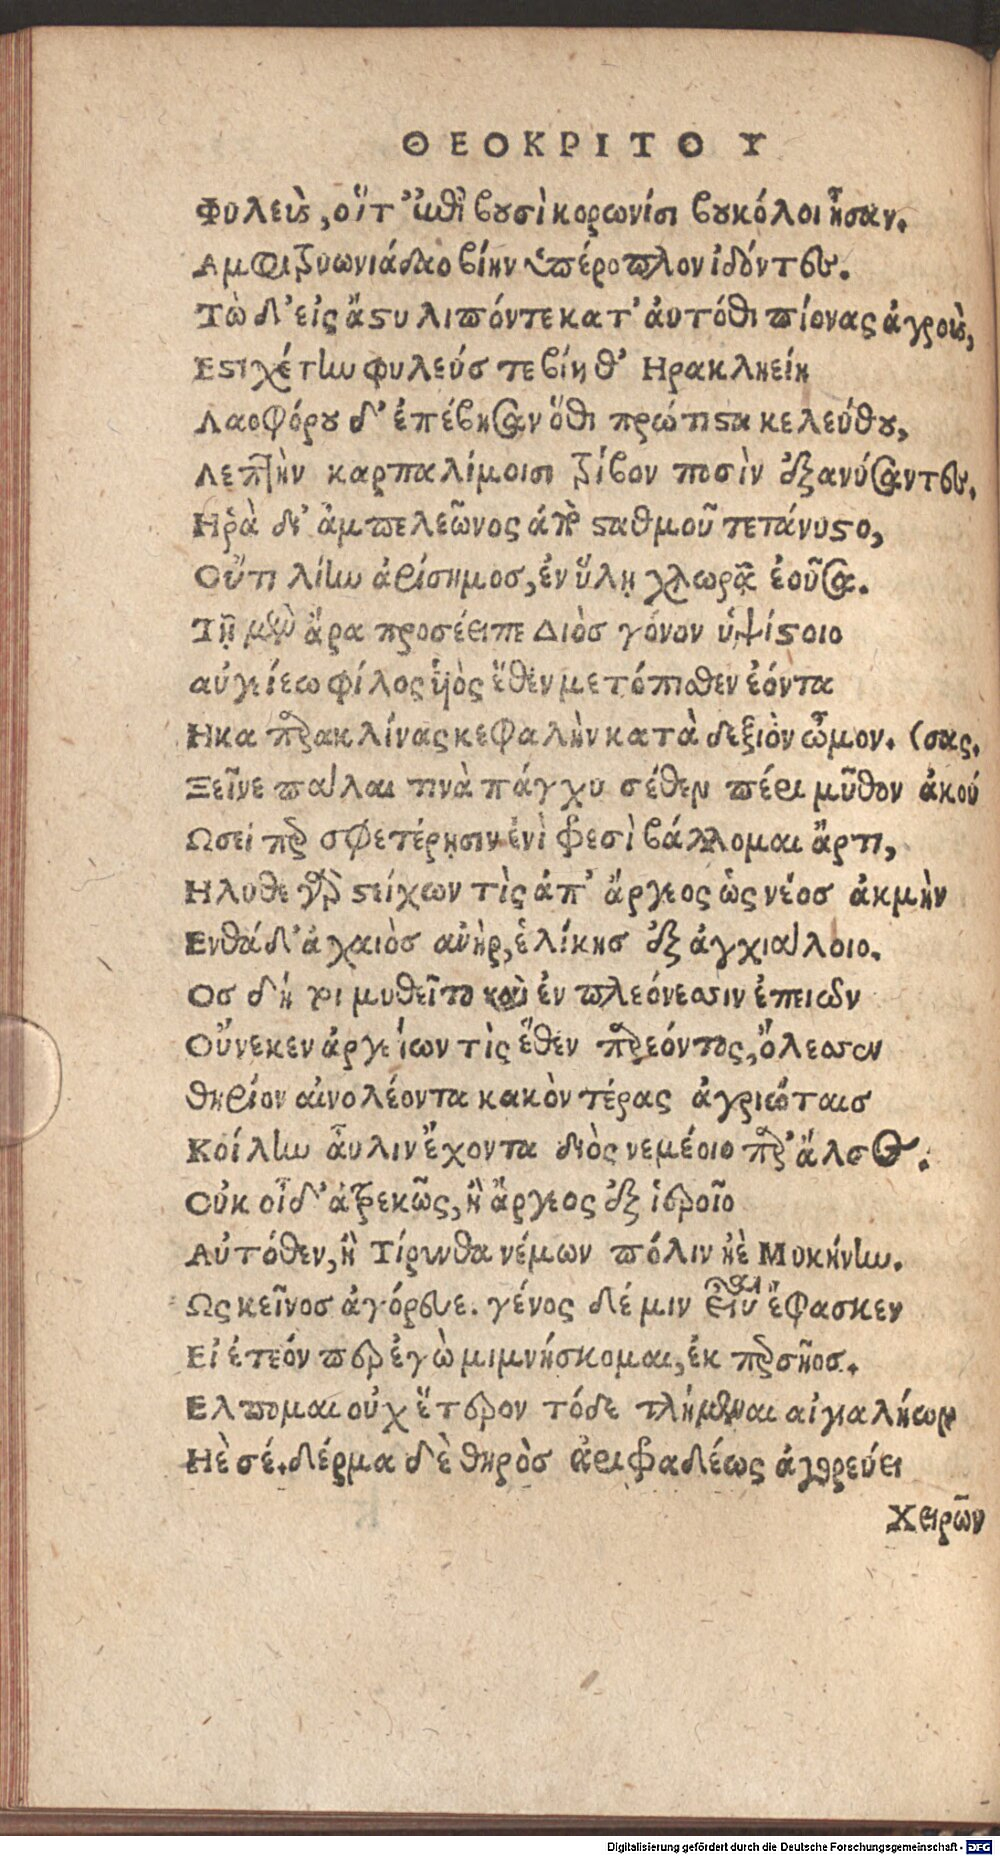 ΘΕΟΚΡΙΤΟΥ
Φυλεὺς, οἵτ' ἀμφὶ βουσὶ κορωνίσι βουκόλοι ἦσαν.
Αμφιτρυωνιάδαο βίην ὑπέροπλον ἰδόντες.
Τὼ δ' εἰς ἄστυ λιπόντε κατ' ἀυτόθι πίονας ἀγροὺς,
Εστιχέτην φυλεύσ τε βίη θ' Ηρακληείη
Λαοφόρου δ' ἐπέβησαν ὅθι πρώτιστα κελεύθου,
Λεπτὴν καρπαλίμοισι τρίβον ποσὶν ἐξανύσαντες.
Η ῥὰ δι' ἀμπελεῶνος ἀπὸ σταθμοῦ τετάνυστο,
Οὔτι λίην ἀρίσημοσ, ἐν ὕλῃ χλωρᾷ ἐοῦσα.
Τῇ μὲν ἄρα προσέειπε Διὸσ γόνον ὑψίστοιο
αὐγείεω φίλος ὑὸς ἕθεν μετόπισθεν ἐόντα
Ηκα παρακλίνας κεφαλὴν κατὰ δεξιὸν ὦμον. (σας.
Ξεῖνε πάλαι τινὰ πάγχυ σέθεν πέρι μῦθον ἀκού
Ωσεί περ σφετέρῃσιν ἐνὶ φρεσὶ βάλλομαι ἄρτι,
Ηλυθε γὰρ στείχων τὶς ἀπ' ἄργεος ὡς νέοσ ἀκμὴν
Ενθάδ' ἀχαιὸσ ανὴρ, ἑλίκησ ἐξ ἀγχιάλοιο.
Οσ δή τοι μυθεῖτο καὶ ἐν πλεόνεσσιν ἐπειῶν
Οὕνεκεν ἀργείων τὶς ἕθεν παρεόντος, ὄλεσσεν
θηρίον αἰνολέοντα κακὸν τέρας ἀγριώταισ
Κοίλην ἆυλιν ἔχοντα διὸς νεμέοιο παρ' ἄλσος.
Οὐκ οἶδ' ἀτρεκῶς, ἢ ἄργεος ἐξ ἱεροῖο
Αὐτόθεν, ἢ Τίρυνθα νέμων πόλιν ἠὲ Μυκήνην.
Ως κεῖνοσ ἀγόρευε. γένος δέ μιν εἶναι ἔφασκεν
Εἰ ἐτεόν περ ἐγὼ μιμνήσκομαι, ἐκ περσῆοσ.
Ελπομαι οὐχ ἕτερον τόδε τλήμεναι αἰγιαλήων
Ηὲ σέ. δέρμα δὲ θηρὸσ ἀριφραδέως ἀγορεύει
Χειρῶν
Digitalisierung gefördert durch die Deutsche Forschungsgemeinschaft - DFG